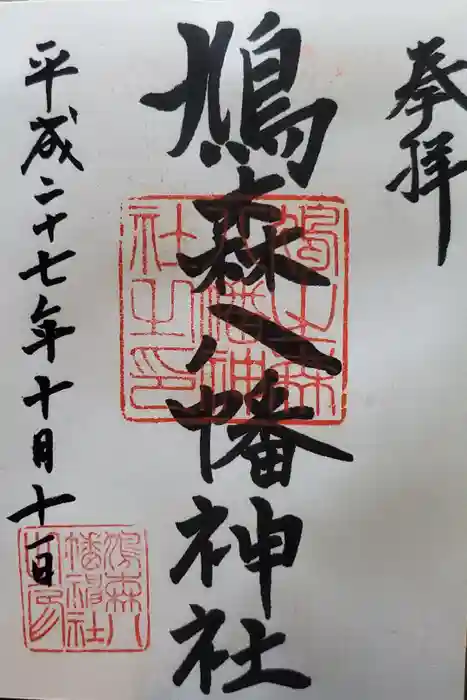 奉拝
鳩森八幡神社
鳩之森
八幡神
社之印
平成二十七年十月十一日
鳩森八
幡神社